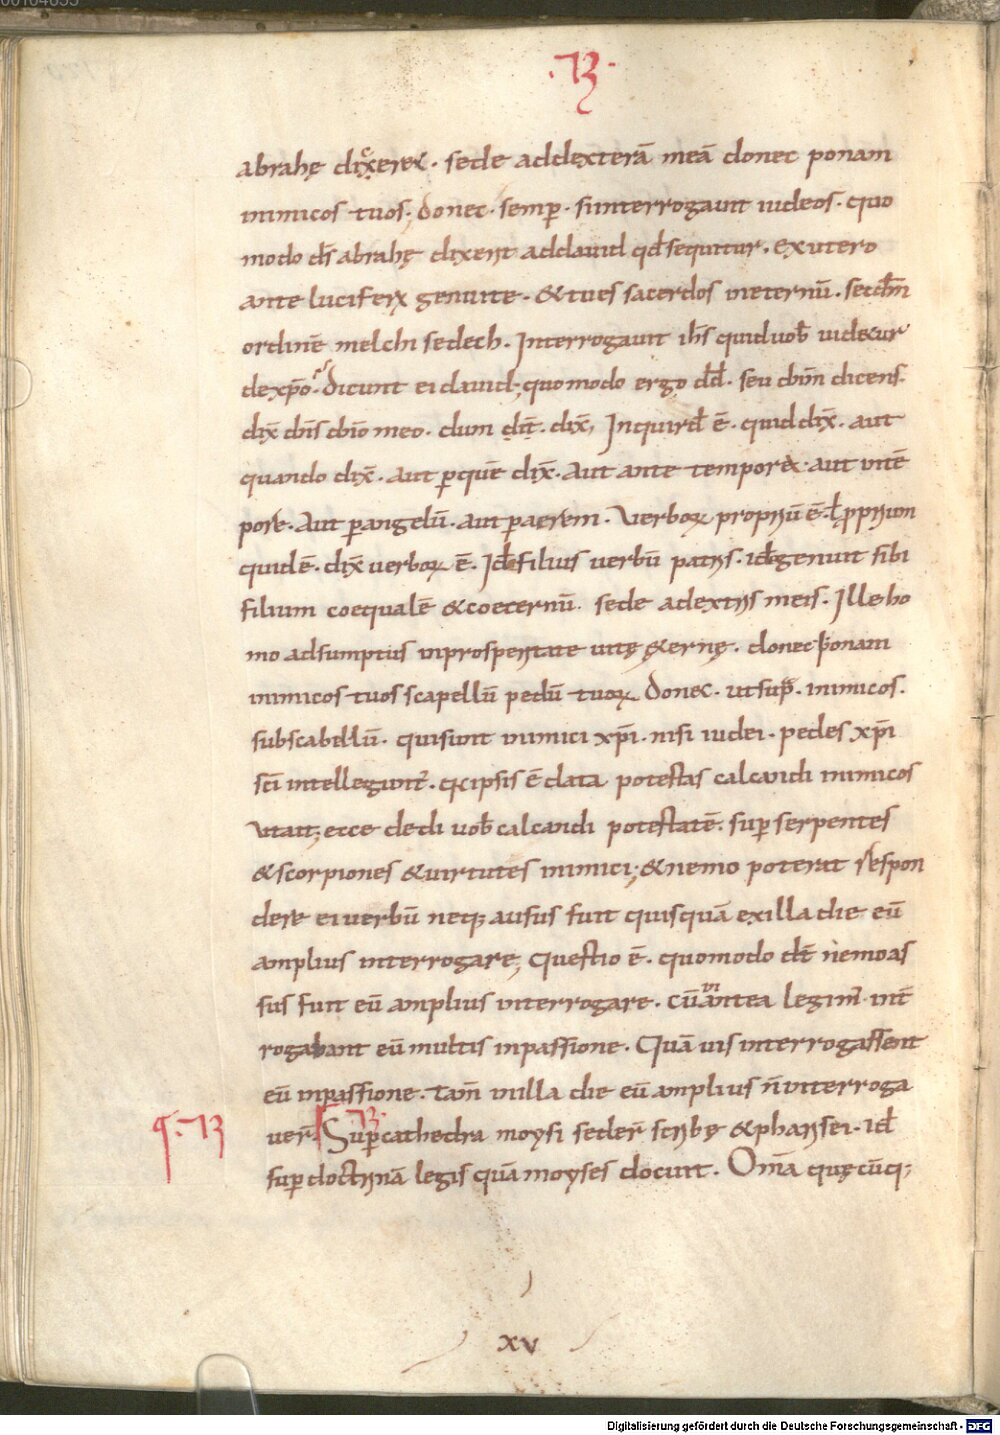 ·73·
abrahę dixeret · sede addexterā meā donec ponam
inimicos tuos; donec · semp̄ · sinterrogauit iudeos · quo
modo d̄s abrahę dixerit addauid qd̄ sequitur · ex utero
ante luciferx genuite · &tues sacerdos ineternū · secd̄m
ordinē melchi sedech · Interrogauit ih̄s quiduob̄ uidetur
dexp̄o · dicunt ei dauid; quomodo ergo d̄d · seu dn̄m dicens ·
dix̄ dn̄s dn̄o meo · dum dīt · dix̄, Inquird̄ ē · quid dix̄ · aut
quando dix̄ · aut p̱quē dix̄ · aut ante tempore · aut intē
pore · aut p̱angelū · aut p̱aerem · Verboꝝ propriū ē · ł p̱prium
quid ē · dix̄ uerboꝝ ē · Id̄ filius uerbū patris · id̄ genuit sibi
filium coequalē &coeternū · sede adextris meis · Ille ho
mo adsumptus inprosperitate uitę &ernę · donec ponam
inimicos tuos scapellū pedū tuoꝝ Donec · utsup̄ · inimicos ·
subscabellū · quisiunt inimici xp̄i · nisi iudei · pedes xp̄i
sc̄i intellegunt̄ · ipsis ē data potestas calcandi inimicos
utait; ecce dedi uob̄ calcandi potestatē · sup̱ serpentes
&scorpiones &uirtutes inimici; &nemo poterat respon
dere ei uerbū neq; ausus fuit quisquā exilla die eū
amplius interrogare; Questio ē · quomodo dīt nemoas
sus fuit eū amplius interrogare · cū antea legim̄ int̄
rogabant eū multis inpassione · Quā uis interrogassent
eū inpassione · tam̄ inilla die eū amplius n̄ interroga
uer̄ · Sup̱cathedra moysi seder̄ scribę &pharisei · id̄
sup̱ doctrinā legis quā moyses docuit · Om̄a quęcūq;
·73·
q · 73
xv
Digitalisierung gefördert durch die Deutsche Forschungsgemeinschaft - DFG